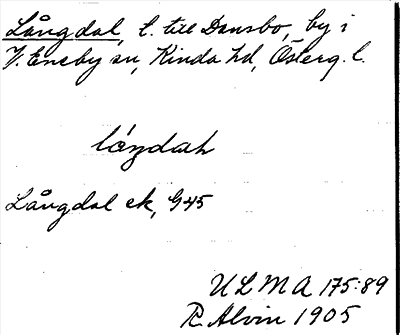 Långdal, t. till Dansbo, by i
V. Eneby sn, Kinda hd, Österg. l.
Långdal ek, G45
ULMA 175:89
R. Alvin 1905